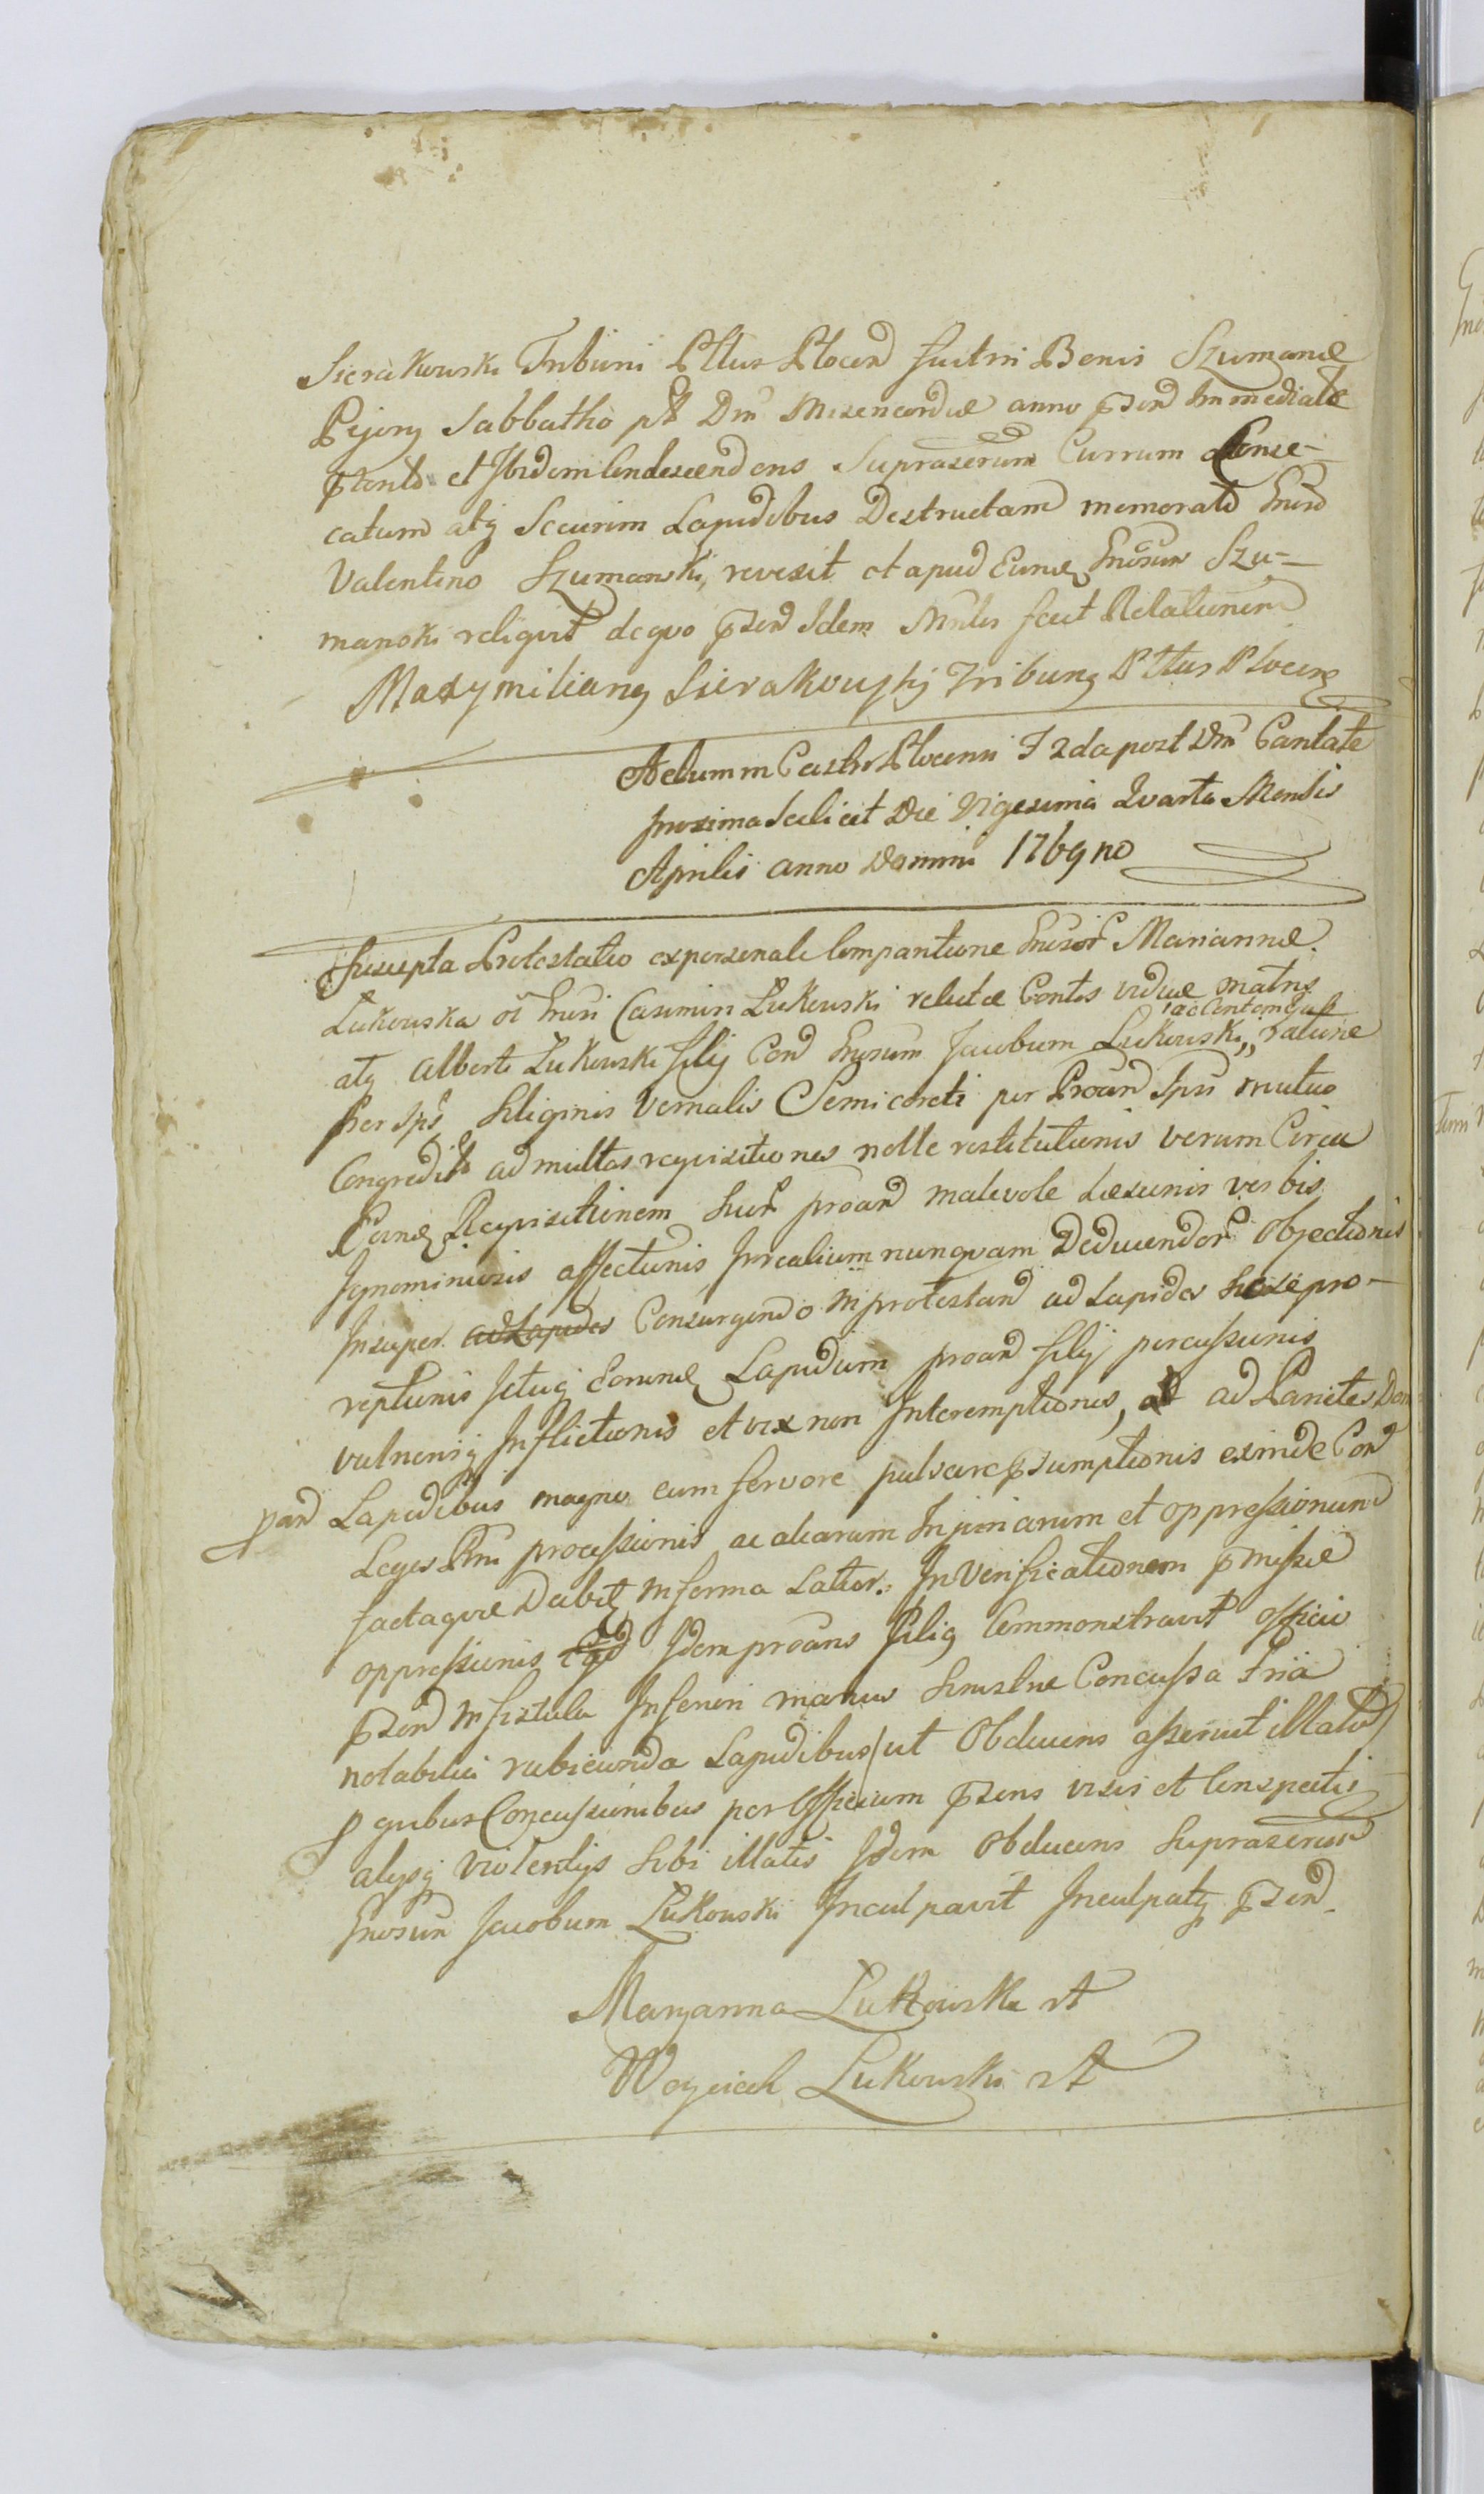 Sierakowski Tribuni Pttus Plocen factm Bonis Szumanie
Pejorg Sabbatho pt Dm Misericordiae anno pzen Immediate
pzento et Ibidem Condescendens Suprazerum Currum Conse-
catum atq Securim Lapidibus Destructam memorato Gnero
Valentino Szumanski, revisit et apud Eund Gnosum Szu-
manski reliqvit deqvo pzen Idem Mnler fecit Relationem
Maxymiliang Sierakowskj Tribung Pttus Plocen
Actum in Castro Plocensi F 2da post Dm Cantate
proxima Scilicet Die Vigesima Qvarta Mensis
Aprilis anno Domini 1769no
Suscepta Protestatio ex personali Comparitione Gnosor Mariannae
Lukowska oi Gnosi Casimiri Lukowski relictae Contos viduae matris
atq Alberti Lukowski filij Con Gnosum Jacobum Lukowski,, ratione
Siliginis Vernalis Semicoreti per Proan Ipsi mutuo
Congredito ad multas reqvisitiones nolle restitutionis verum Circa
Eand Reqvisitionem Suor proan malevole Laesionis verbis
Ignominiosis affectionis Irrealium nunqvam Deducendor Objectionis
Insuper ad Lapides Consurgendo in protestan ad Lapides Sese pro-
reptionis Ictuq Eorund Lapidum proan filij percussionis
vulnerisq Inflictionis et vix non Interemptionis, at ad Parietes Dom
pan Lapidibus magno cum fervore pulsare pzumptionis exinde Con
Leges Rni processionis ac aliarum Injuriarum et oppressionum
factaqve Debitq in forma Latior. In Verificationem pmissae
oppressionis Idem proans filig Commonstravit officio
pzen in fistula Inferiori manus Sinistrae Concussa Tria
notabilia rubicunda Lapidibus (ut Obducens asseruit illato)
p qvibus Concussionibus per Officium pzens visis et Conspectis
alijsq violentijs Sibi illatis Idem Obducens Suprazerum
Gnosum Jacobum Lukowski Inculpavit Inculpatq pzen
Maryanna Lukowska
Woyciech Lukowski